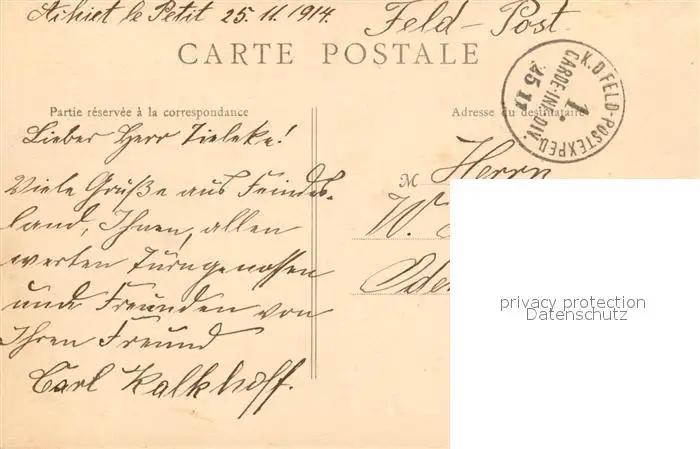 Achiet le Petit 25.11.1914. Feld-Post.
CARTE POSTALE
K.D. FELD-POSTEXPED.
1.
GARDE-INF.DIV.
25 11
Partie réservée à la correspondance
Adresse du destinataire
Lieber Herr Tieleke!
Viele Grüße aus Feindes-
land, Ihnen, allen
werten Turngenossen
und Freunden von
Ihren Freund
Carl Kalkhoff.
M Herrn
W.
privacy protection
Datenschutz